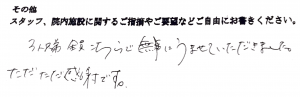 その他
スタッフ、院内施設に関するご指摘やご要望などご自由にお書きください。
3人共 全員こちらで無事にうませていただきました。
ただただ感謝です。